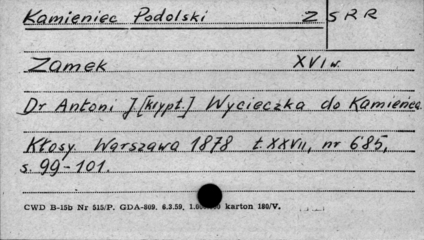 Kamieniec Podolski ZSRR
Zamek XVI w.
Dr Antoni J [krypt.] Wycieczka do Kamieńca.
Kłosy. Warszawa 1878 t. XXVII, nr 685,
s. 99-101.
CWD B-15b Nr 515/P. GDA-809. 6.3.59. karton 180/V.